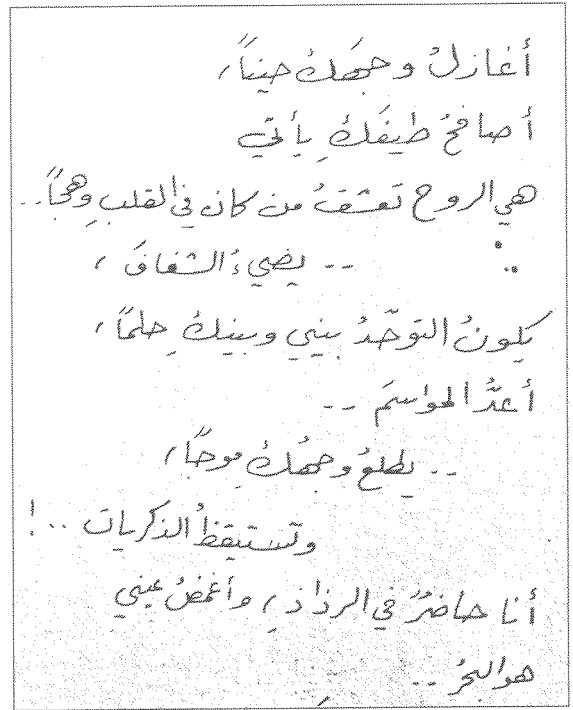 أغازلُ وجهَكِ حيناً،
أصافحُ طيفَكِ يأتي
هي الروح تعشقُ من كان في القلبِ وهجاً..
-- يضيءُ الشغافَ ،
يكونُ التوحّدُ بيني وبينكِ حلماً،
أعدُّ المواسمَ --
-- يطلعُ وجهُكِ موجاً،
وتستيقظُ الذكريات ..!
أنا حاضرٌ في الرذاذِ، وأغمضُ عيني
هو البحرُ --